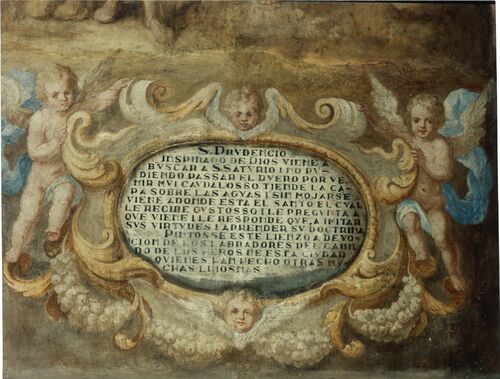 S. PRUDENCIO
INSPIRADO DE DIOS VIENE A
BUSCAR A S SATURIO I NO PU
DIENDO PASSAR EL DUERO POR VE
NIR MUI CAUDALOSSO TIENDE LA CA
PA SOBRE LAS AGUAS I SIN MOJARSE
VIENE ADONDE ESTA EL SANTO EL CUAL
LE RECIBE GUSTOSSO I LE PREGUNTA A
QUE VIENE I LE RESPONDE QUE, A IMITAR
SUS VIRTUDES I APRENDER SU DOCTRINA
PINTOSSE ESTE LIENZO A DEVO
CION DE LOS LABRADORES DEL CABIL
DO DE LOS HEROS DE ESTA CIUDAD
QUIENES LAN HECHO OTRAS MU
CHAS LIMOSNAS